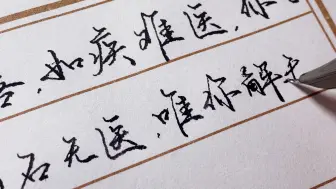 若，如疾难医，你
石无医，唯你解